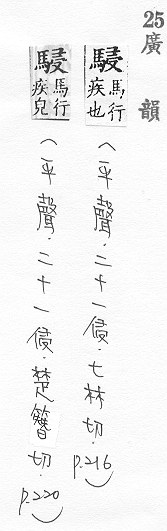 25
廣韻
駸馬行疾也(平聲.二十一侵.七林切.p.216)
駸馬行疾皃(平聲.二十一侵.楚簪切.p.220)